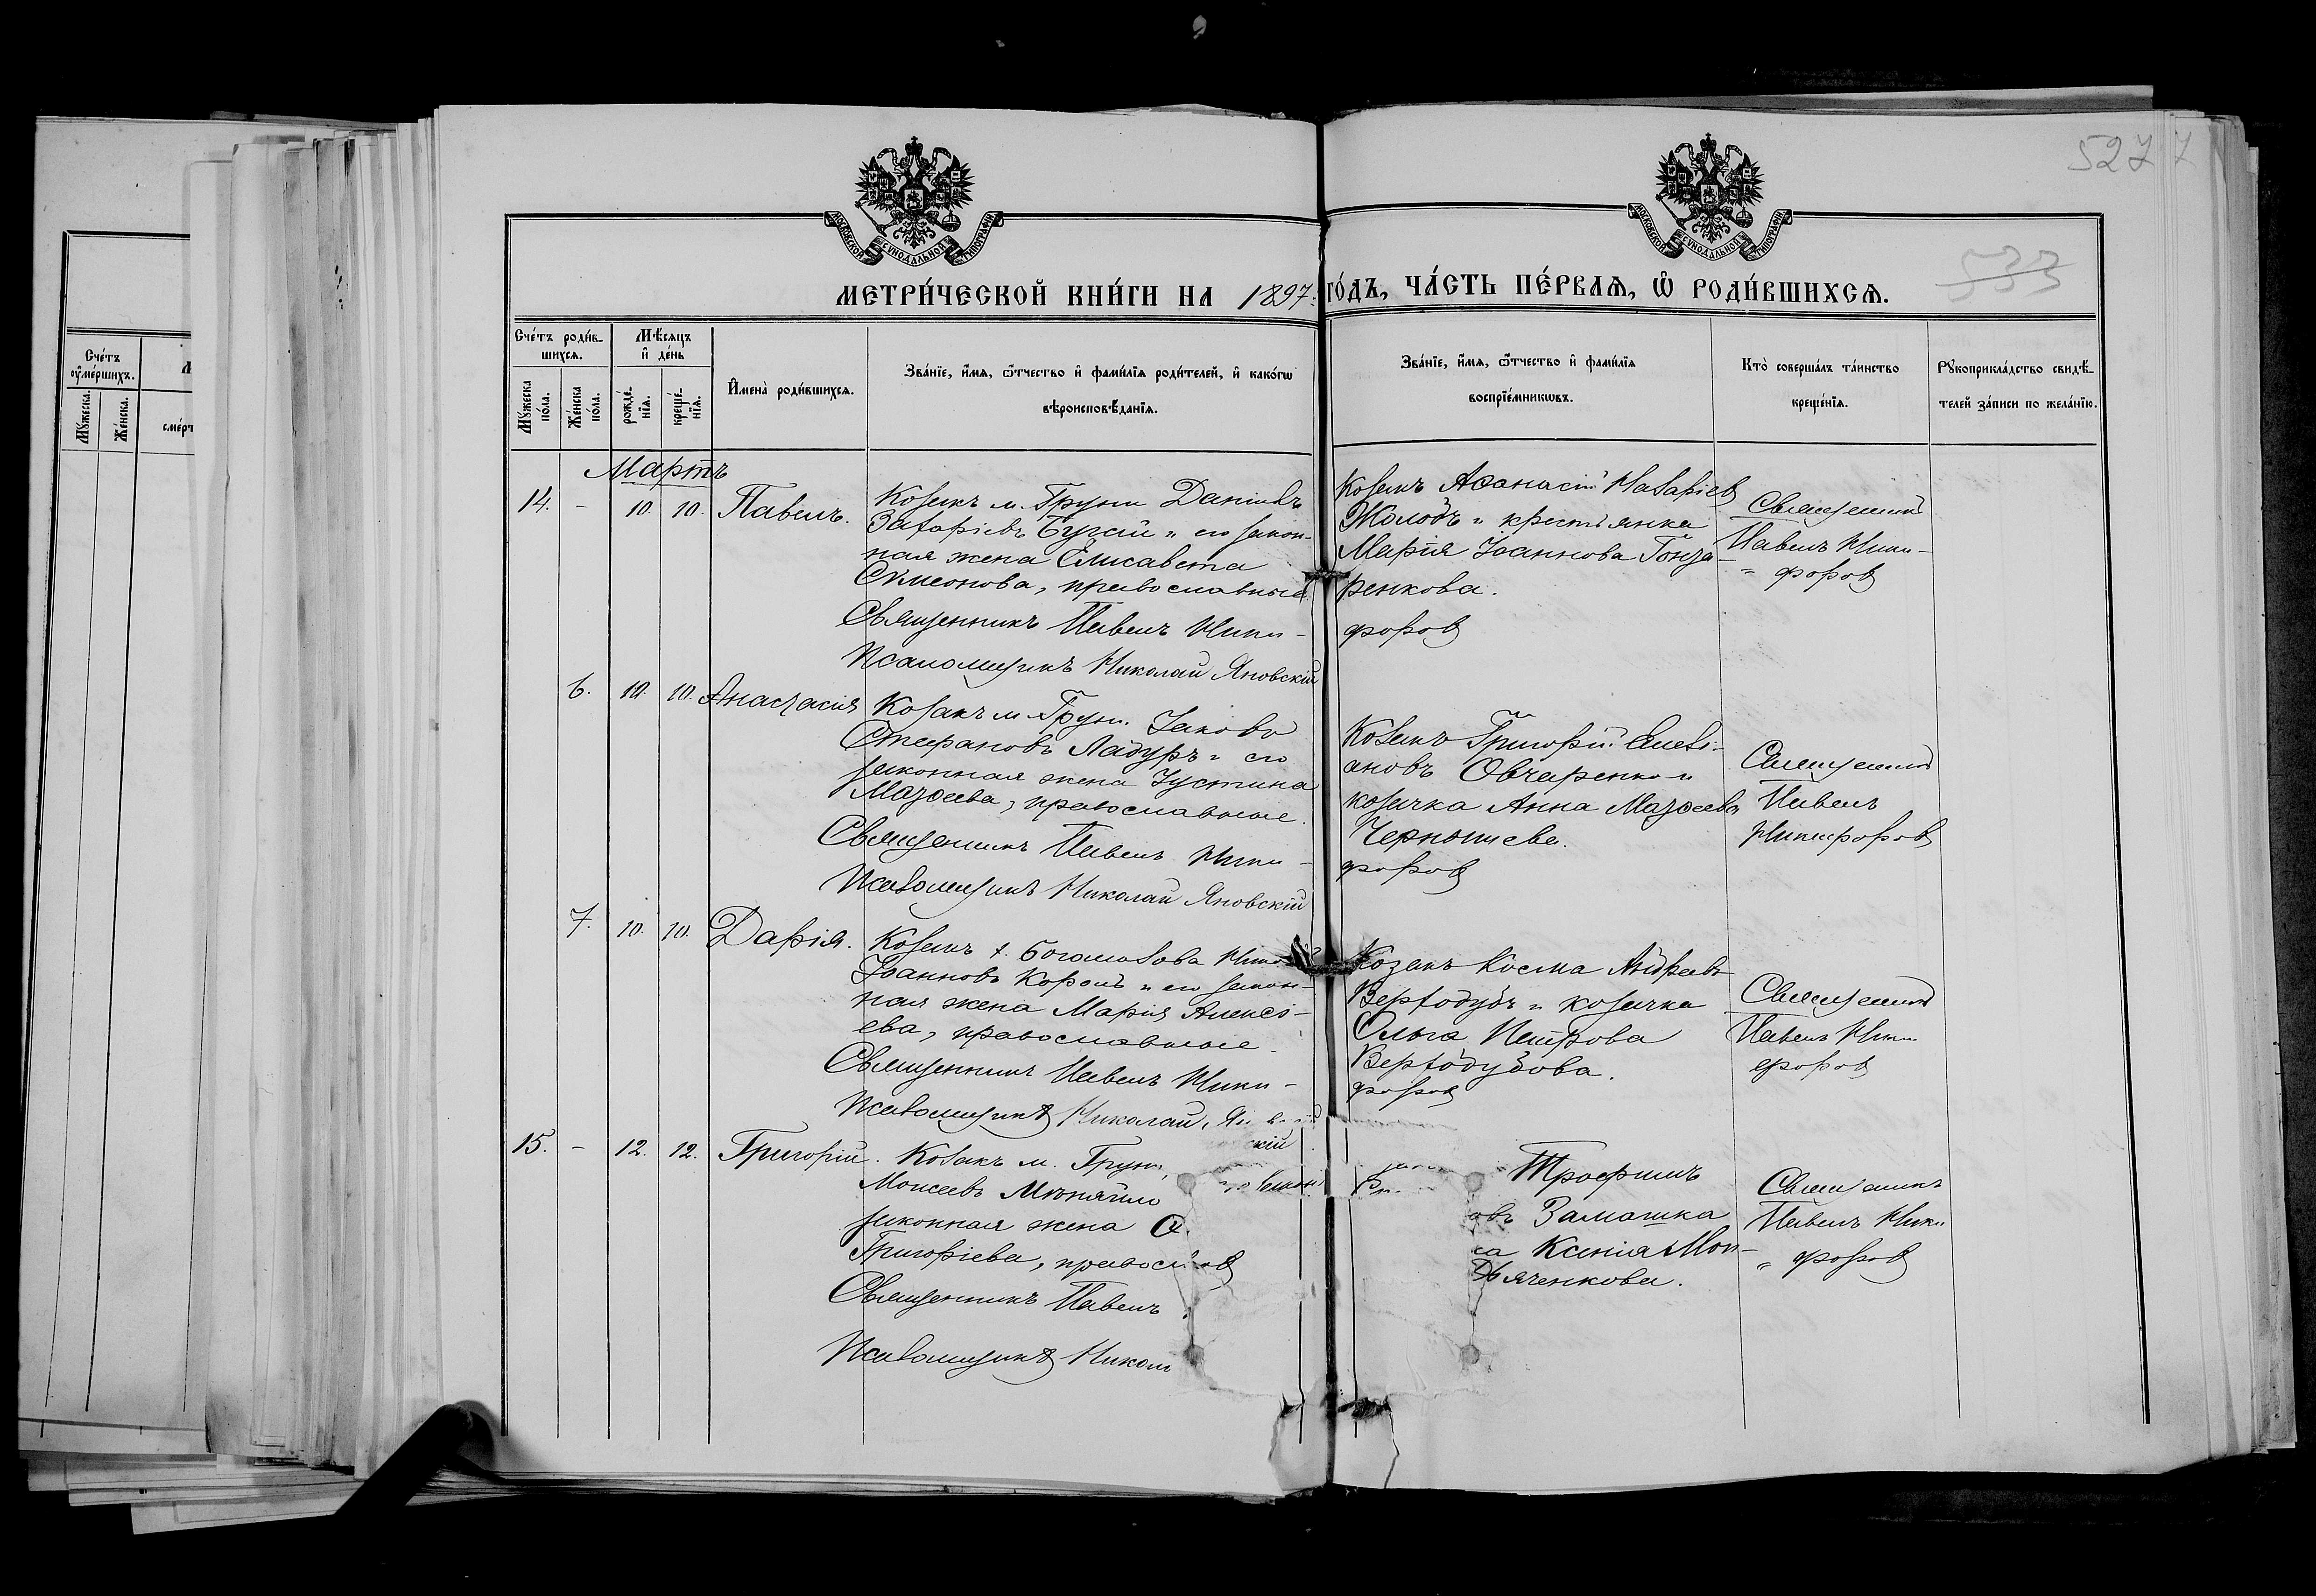 527 7
533
МОСКОВСКОЙ СѴНОДАЛЬНОЙ ТИПОГРАФІИ
МОСКОВСКОЙ СѴНОДАЛЬНОЙ ТИПОГРАФІИ
МЕТРИ́ЧЕСКОЙ КНИ́ГИ НА 1897 ГО́ДЪ, ЧА́СТЬ ПЕ́РВАѦ, Ѡ҆ РОДИ́ВШИХСѦ.
Сче́тъ оу҆ме́ршихъ.
Мꙋ́жеска.
Же́нска.
сме́рт
Сче́тъ роди́в-
шихсѧ.
Мꙋ́жеска по́ла.
Же́нска по́ла.
Мѣ́сѧцъ
и҆ де́нь
рожде́-
нїѧ.
креще́-
нїѧ.
И҆мена̀ роди́вшихсѧ.
Зва́нїе, и҆́мѧ, ѻ҆́тчество и҆ фами́лїѧ роди́телей, и҆ како́гѡ
вѣроисповѣ́данїѧ.
Зва́нїе, и҆́мѧ, ѻ҆́тчество и҆ фами́лїѧ
воспрїе́мникѡвъ.
Кто̀ соверша́лъ та́инство
креще́нїѧ.
Рꙋкоприкла́дство свидѣ́-
телей за́писи по жела́нїю.
Мартъ
14. - 10. 10. Павелъ.
Козакъ м. Груни Даніилъ
Захаріевъ Бугай и его закон-
ная жена Елисавета
Сѵмеонова, православные.
Священникъ Павелъ Ники-
форовъ
Псаломщикъ Николай Яновскій
Козакъ Аѳанасій Назаріевъ
Жолобъ и крестьянка
Марія Іоаннова Гонча-
ренкова.
Священникъ
Павелъ Ники-
форовъ
6. 10. 10. Анастасія
Козакъ м. Груни Іаковъ
Стефановъ Ладуръ и его
законная жена Іустина
Моѵсеева, православные.
Священникъ Павелъ Ники-
форовъ
Псаломщикъ Николай Яновскій
Козакъ Григорій
ановъ Овчаренко и
козачка Анна Моѵсеева
Чернышева.
Священникъ
Павелъ
Никифоровъ
7. 10. 10. Дарія.
Козакъ х.
Іоанновъ Король и его закон-
ная жена Марія Алексі-
ева, православные.
Священникъ Павелъ Ники-
форовъ
Псаломщикъ Николай
скій
Козакъ Косма Андреевъ
Вертодубъ и козачка
Ольга Петрова
Вертодубова.
Священникъ
Павелъ Ники
форовъ
15. - 12. 12. Григорій.
Козакъ м. Груни
Моисеевъ
законная жена
Григоріева, правосл
Священникъ Павелъ
Псаломщикъ Никол
Трофимъ
овъ Замашка
ка Ксенія Мои-
Дьяченкова.
Священникъ
Павелъ Ники
форовъ